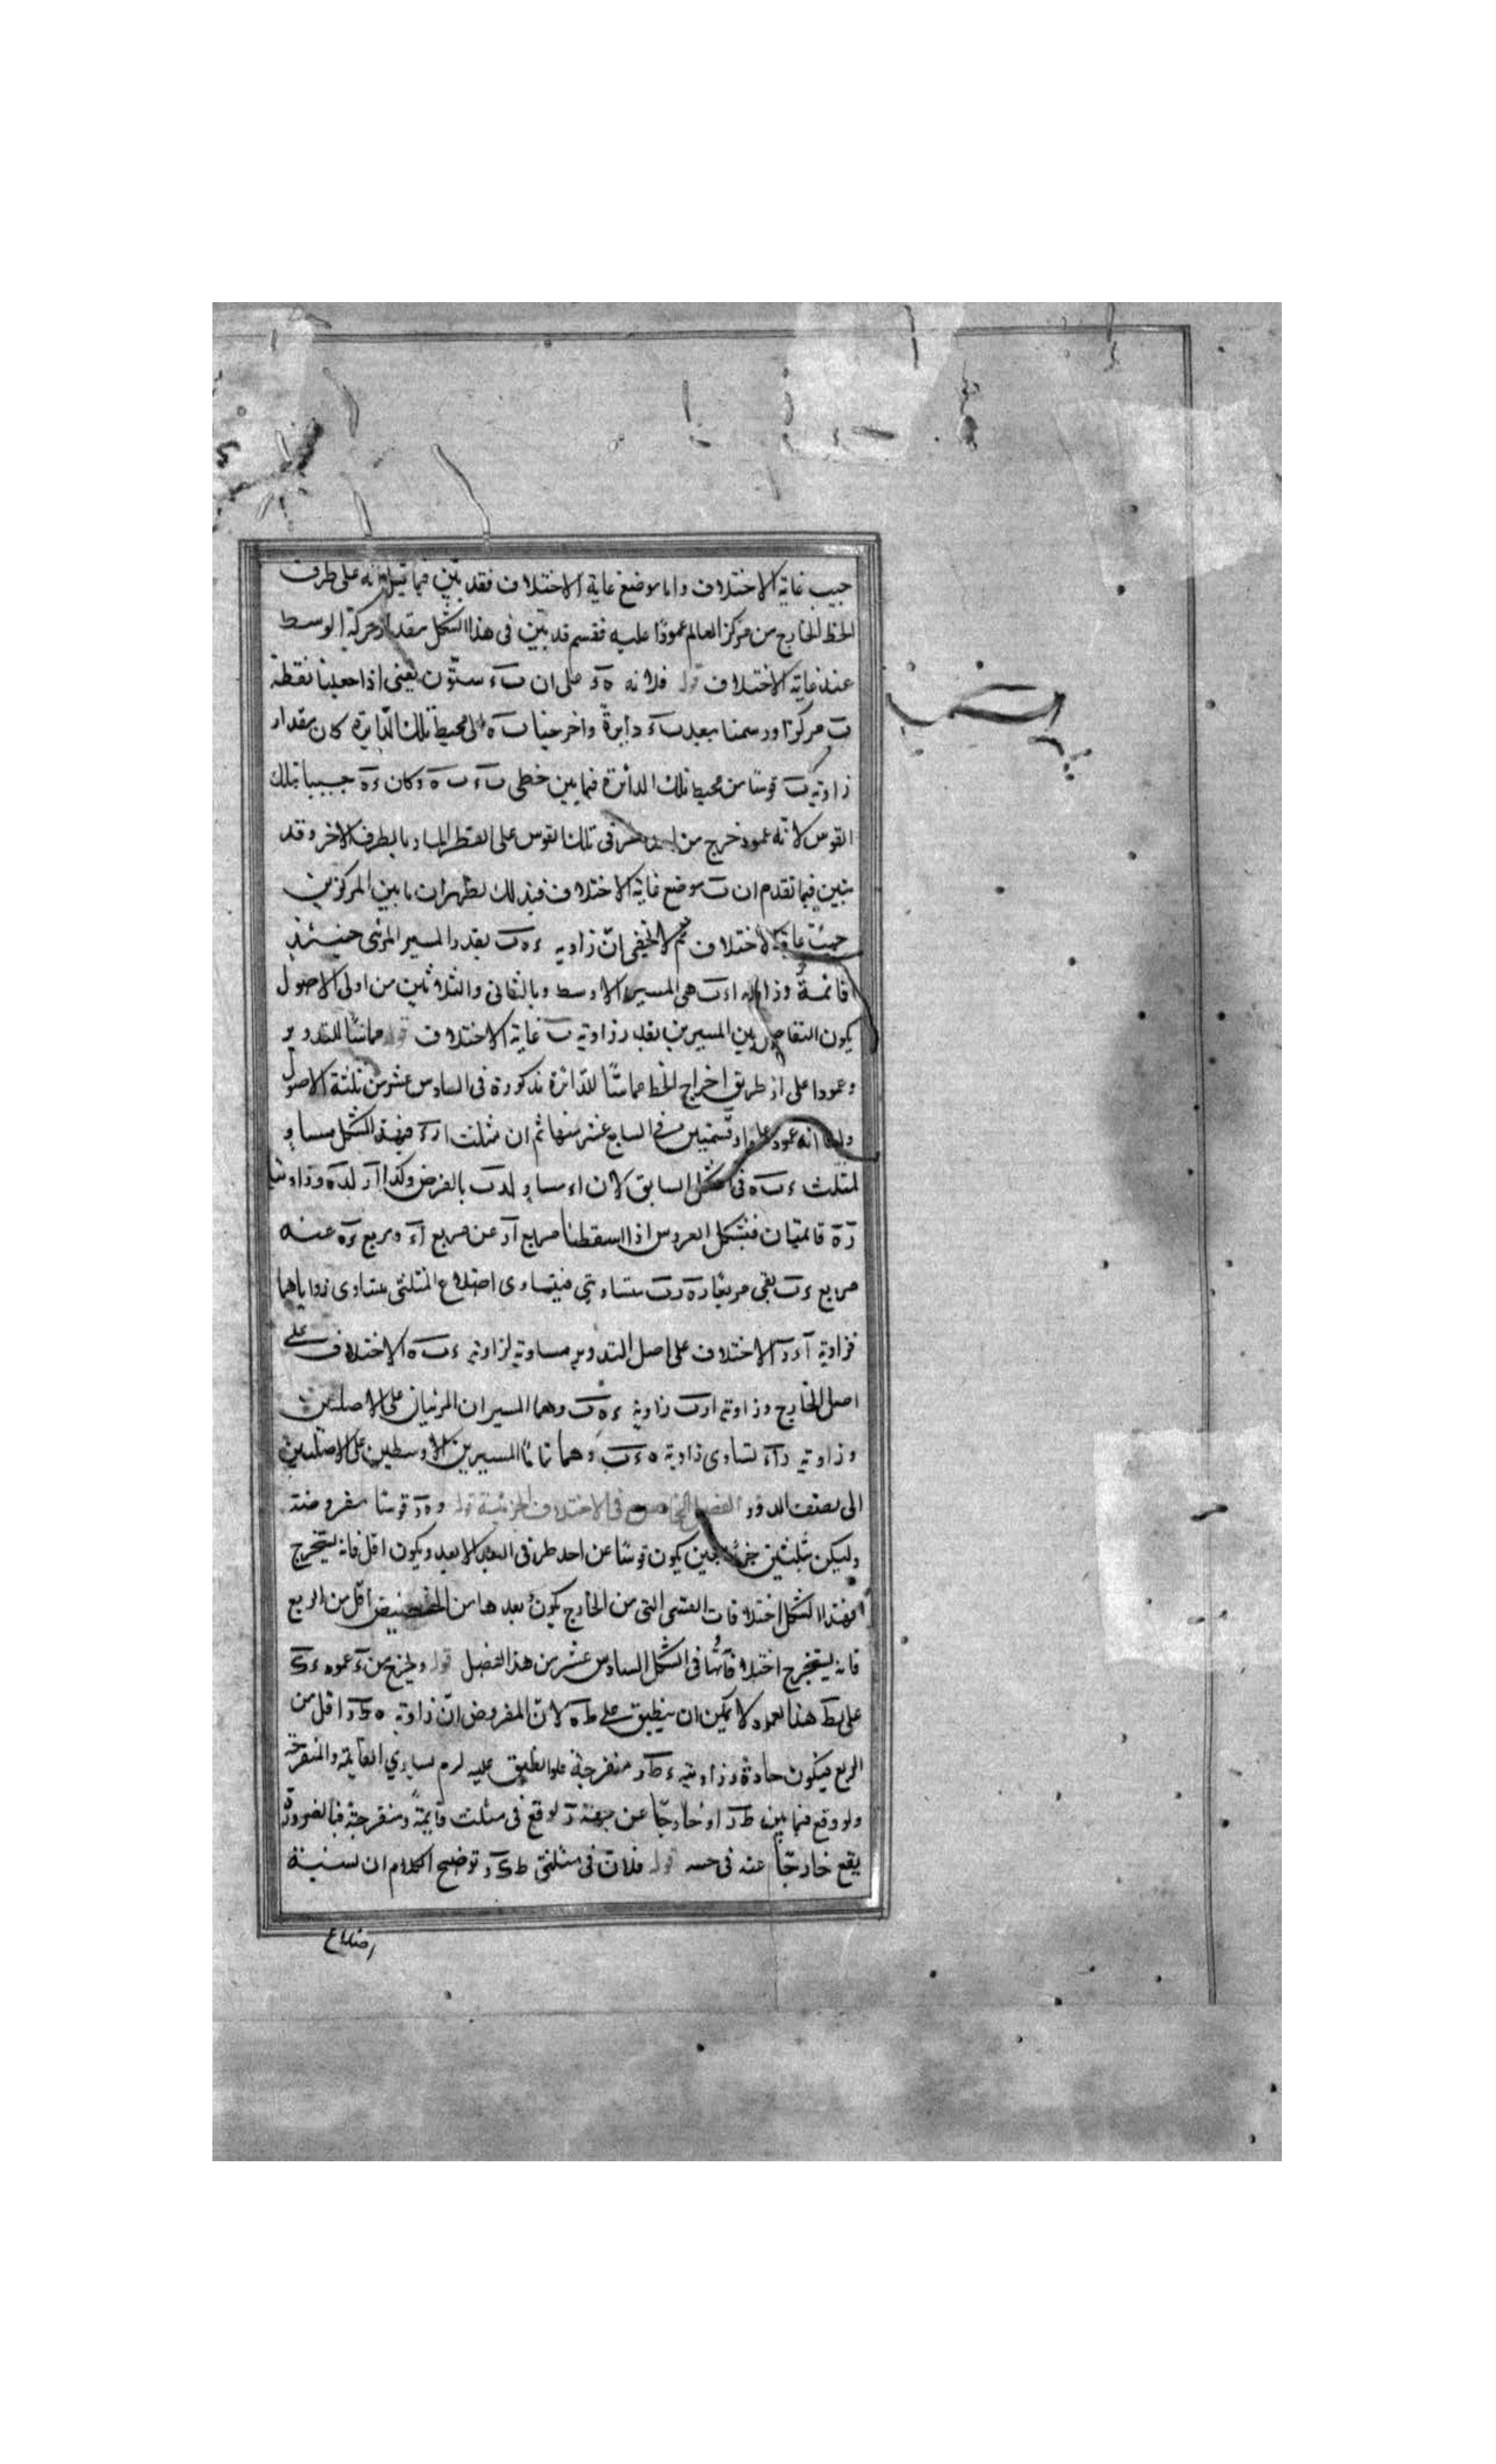 جيب غاية الاختلاف واما موضع غاية الاختلاف فقد تبين فيما قبل انه على طرف
الخط الخارج من مركز العالم عمودًا عليه فقسم قد تبين فى هذا الشكل مقدار حركة الوسط
عند غاية الاختلاف قوله فلانه ءه على ان بء ستّون يعنى اذا جعلنا نقطة
ب مركزًا ورسمنا ببعد بء دايرةً واخرجنا به الى محيط تلك الدّايرة كان مقدار
زاوية ب قوسًا من محيط تلك الدائرة فيما بين خطى بء به وكان ءه جيبا تلك
القوس لانّه عمود خرج من احد طرفى تلك القوس على القطر المار بالطرف الاخر وقد
تبين فيما تقدم ان ب موضع غاية الاختلاف فبذلك يظهر ان ما بين المركزين
جيب غاية الاختلاف ثم لا يخفى انّ زاوية ءهب بقدر المسير المرئى حينئذٍ
قائمةٌ وزاوية اءب هى المسير الاوسط وبالثانى والثلاثين من اولى الاصول
يكون التفاضل بين المسيرين بقدر زاوية ب غاية الاختلاف قوله مماسًّا للتدوير
وعمودا على از طريق اخراج الخط مماسًّا للدّائرة مذكورة فى السادس عشر من ثلثة الاصول
وانه عمود على از تبين فى السابع عشر منها ثم ان مثلث ازء فى هذا الشكل مساوٍ
لمثلث ءبه فى الشكل السابق لان اء مساوٍ لءب بالفرض وكذا از لءه وزاويتا
زه قائمتان فبشكل العروس اذا اسقطنا مربع از عن مربع اء ومربع ءه عنه
مربع ءب بقى مربعا زء هب متساويين فيتساوى اضلاع المثلثين يتساوى زواياهما
فزاوية اءز الاختلاف على اصل التدوير مساوية لزاوية ءبه الاختلاف على
اصل الخارج وزاوية ازء زاوية ءهب وهما المسيران المرئيان على الاصلين
وزاوية زاء تساوى زاوية هءب وهما تماما المسيرين الاوسطين على الاصلين
الى نصف الدور الفصل الخامس فى الاختلاف الجزئية قوله وهز قوسًا مفروضة
وليكن ثلثين جزءًا حين يكون قوسًا عن احد طرفى البعد الابعد ويكون اقل فانه يستخرج
بهذا الشكل اختلافات القسى التى من الخارج يكون بعدها من الحضيض اقل من الربع
فانه يستخرج اختلافاتها فى الشكل السادس عشر من هذا الفصل قوله وليخرج من ء عمود ءك
على بط هذا العمود لا يمكن ان ينطبق على طه لانّ المفروض انّ زاوية هطز اقل من
الربع فيكون حادة وزاوية ءطز منفرجة فلو انطبق عليه لزم تساوى القايمة والمنفرجة
ولو وقع فيما بين طز او خارجًا عن جهة ز لوقع فى مثلث قايمةً ومنفرجة فبالضرورة
يقع خارجًا عنه فى جهة قوله فلان فى مثلثى طكء توضيح الكلام ان نسبة
اضلاع